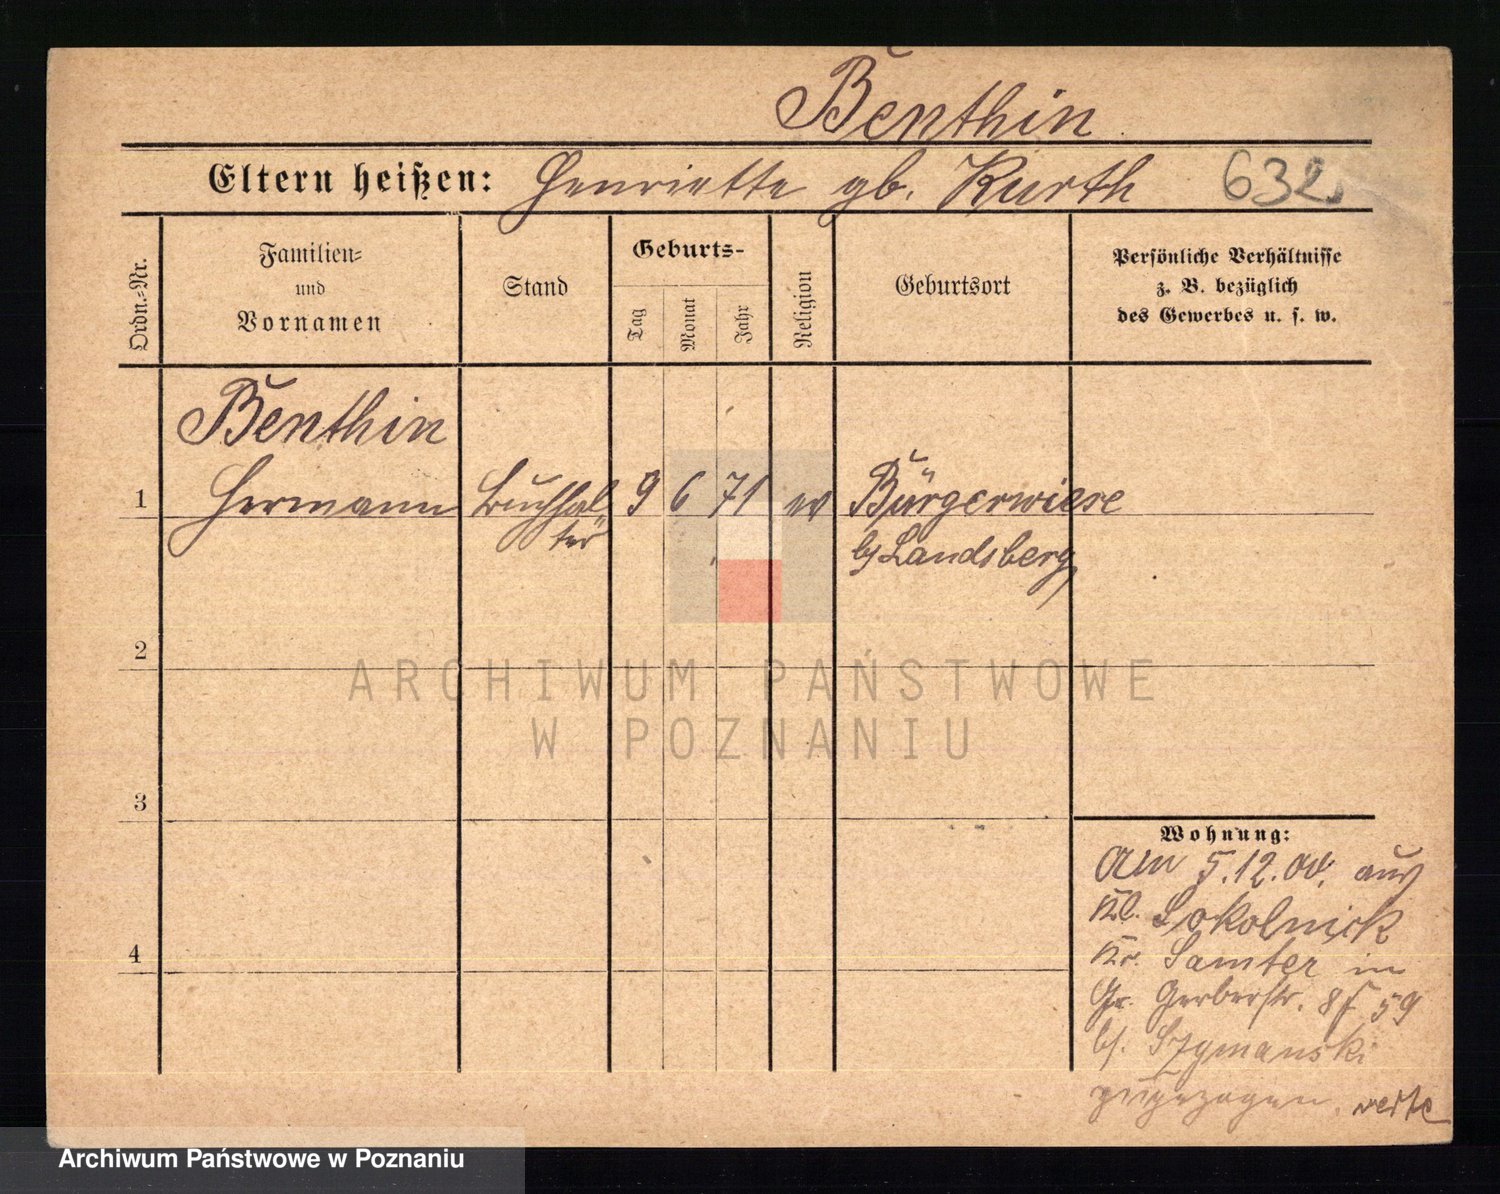 Benthin
Eltern heißen: Henriette gb. Kurth 632
Ordn.-Nr.
Familien-
und
Vornamen
Stand
Geburts-
Tag
Monat
Jahr
Religion
Geburtsort
Persönliche Verhältnisse
z. B. bezüglich
des Gewerbes u. s. w.
Benthin
1 Hermann Buchhal 9 6 71 ev Bürgerwiese
ter b/ Landsberg
2
3
4
Wohnung:
Am 5.12.00. aus
Kl. Sokolnick
Kr. Samter in
Gr. Gerberstr. 8 f 59
b/. Szymanski
zugezogen. verte
ARCHIWUM PAŃSTWOWE
W POZNANIU
Archiwum Państwowe w Poznaniu